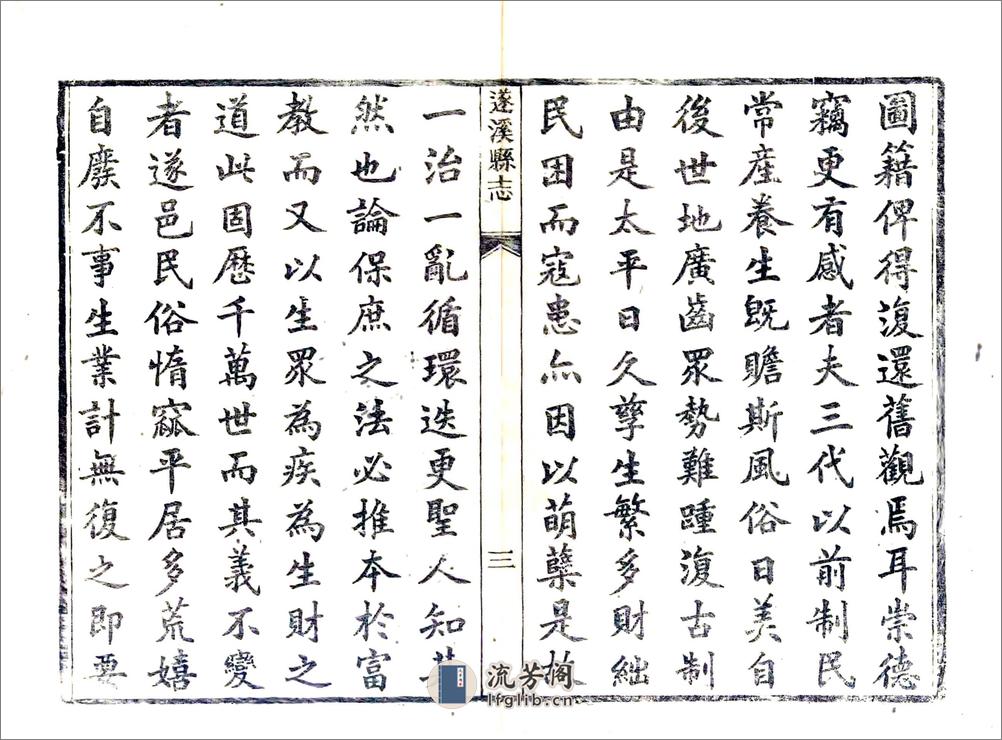 圖籍俾得復還舊觀焉耳崇德
竊更有感者夫三代以前制民
常產養生既贍斯風俗日美自
後世地廣齒眾勢難踵復古制
由是太平日久孳生繁多財絀
民困而寇患亦因以萌櫱是故
遂溪縣志
三
一治一亂循環迭更聖人知其
然也論保庶之法必推本於富
教而又以生眾為疾為生財之
道此固歷千萬世而其義不變
者遂邑民俗惰窳平居多荒嬉
自廢不事生業計無復之即要
流芳閣
lfglib.cn